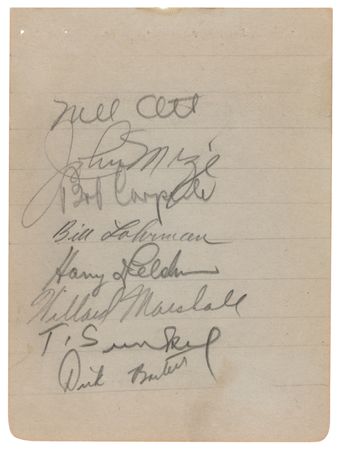 Mel Ott
John Mize
Bob Carpenter
Bill Lohrman
Harry Feldman
Willard Marshall
T. Sunkel
Dick Bartell